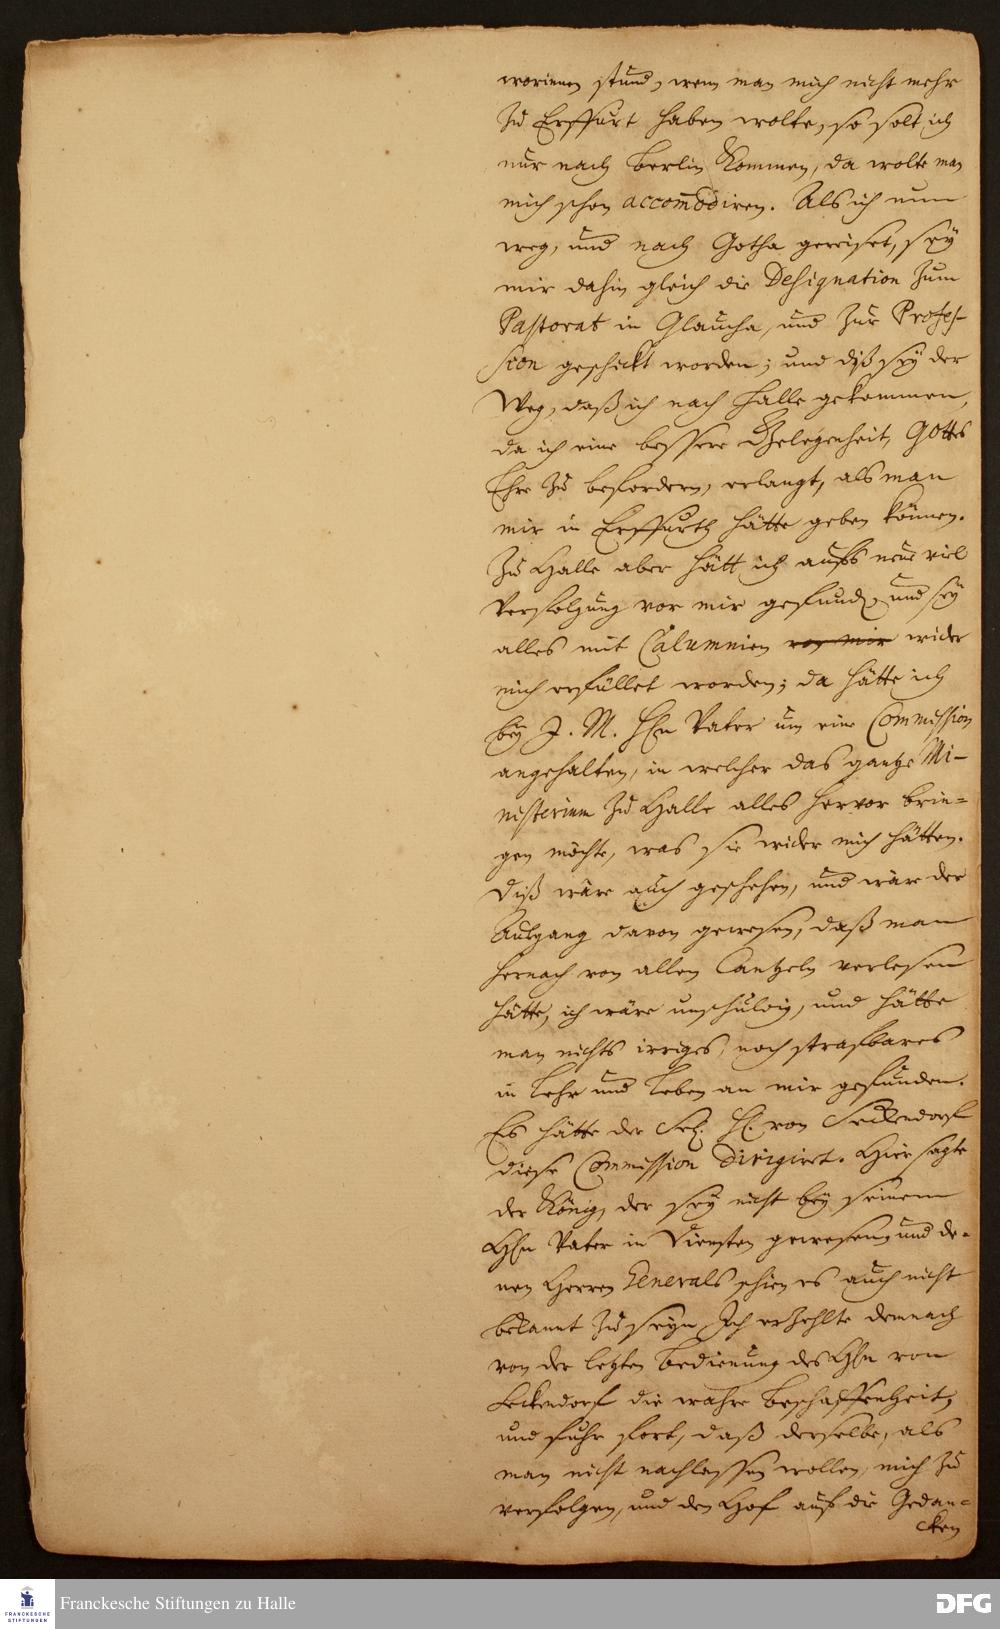 worinnen stund, wenn man mich nicht mehr
zu Erffurt haben wolte, so solt ich
nur nach Berlin kommen, da wolte man
mich schon accom̄odiren. Als ich nun
weg, und nach Gotha gereiset, sey
mir dahin gleich die Designation zum
Pastorat in Glaucha, und zur Profes-
sion geschickt worden; und diß sey der
Weg, daß ich nach Halle gekommen,
da ich eine bessere Gelegenheit, Gottes
Ehre zu befordern, erlangt, als man
mir in Erffurth hätte geben können.
Zu Halle aber hätt ich aufs neue viel
Verfolgung vor mir gefund, und sey
alles mit Calumnien von mir wider
mich erfüllet worden; da hätte ich
bey J. M. Hn Vater um eine Commission
angehalten, in welcher das gantze Mi-
nisterium zu Halle alles hervor brin-
gen möchte, was sie wider mich hätten.
Diß wäre auch geschehen, und wäre der
Ausgang davon gewesen, daß man
hernach von allen Cantzeln verlesen
hätte, ich wäre unschuldig, und hätte
man nichts irriges, noch strafbares
in Lehr und Leben an mir gefunden.
Es hätte der Sel. H. von Seckendorf
diese Commission dirigiret. Hier sagte
der König, der sey nicht bey seinem
Hn Vater in Diensten gewesen, und de-
nen Herren Generals schien es auch nicht
bekannt zu seyn. Ich erzehlte demnach
von der letzten Bedienung des Hn von
Seckendorf die wahre Beschaffenheit,
und fuhr fort, daß derselbe, als
man nicht nachlassen wollen, mich zu
verfolgen, und den Hof auf die Gedan-
cken
Franckesche Stiftungen zu Halle
FRANCKESCHE
STIFTUNGEN
DFG